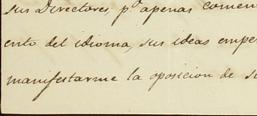 sus Directores, pº apenas comen
ento del idioma, sus ideas empe
manifestarme la oposicion de s